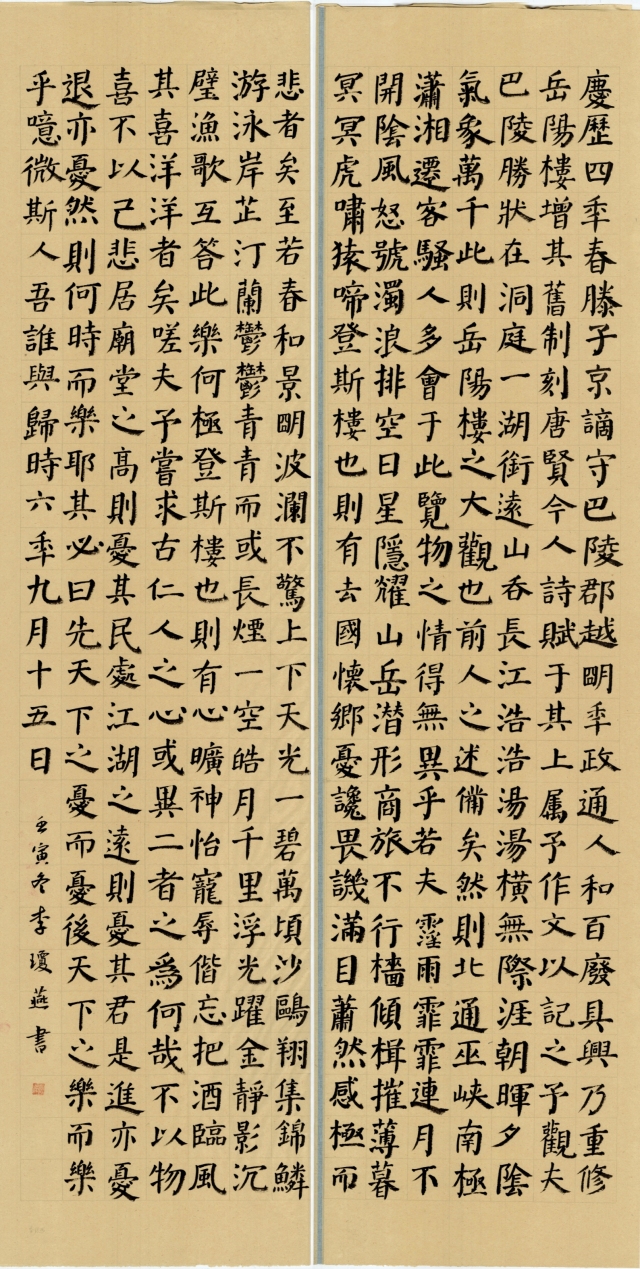 慶歷四秊春滕子京謫守巴陵郡越眀秊政通人和百廢具興乃重修
岳陽樓增其舊制刻唐賢今人詩賦于其上属予作文以記之予觀夫
巴陵勝狀在洞庭一湖銜遠山吞長江浩浩湯湯橫無際涯朝暉夕陰
氣象萬千此則岳陽樓之大觀也前人之述備矣然則北通巫峽南極
瀟湘遷客騷人多會于此覽物之情得無異乎若夫霪雨霏霏連月不
開陰風怒號濁浪排空日星隱耀山岳潛形商旅不行檣傾楫摧薄暮
冥冥虎嘯猿啼登斯樓也則有去國懷鄉憂讒畏譏滿目蕭然感極而
悲者矣至若春和景眀波瀾不驚上下天光一碧萬頃沙鷗翔集錦鱗
游泳岸芷汀蘭鬱鬱青青而或長煙一空皓月千里浮光躍金靜影沉
璧漁歌互答此樂何極登斯樓也則有心曠神怡寵辱偕忘把酒臨風
其喜洋洋者矣嗟夫予嘗求古仁人之心或異二者之爲何哉不以物
喜不以己悲居廟堂之高則憂其民處江湖之遠則憂其君是進亦憂
退亦憂然則何時而樂耶其必曰先天下之憂而憂後天下之樂而樂
乎噫微斯人吾誰與歸時六秊九月十五日
壬寅冬李瓊燕書